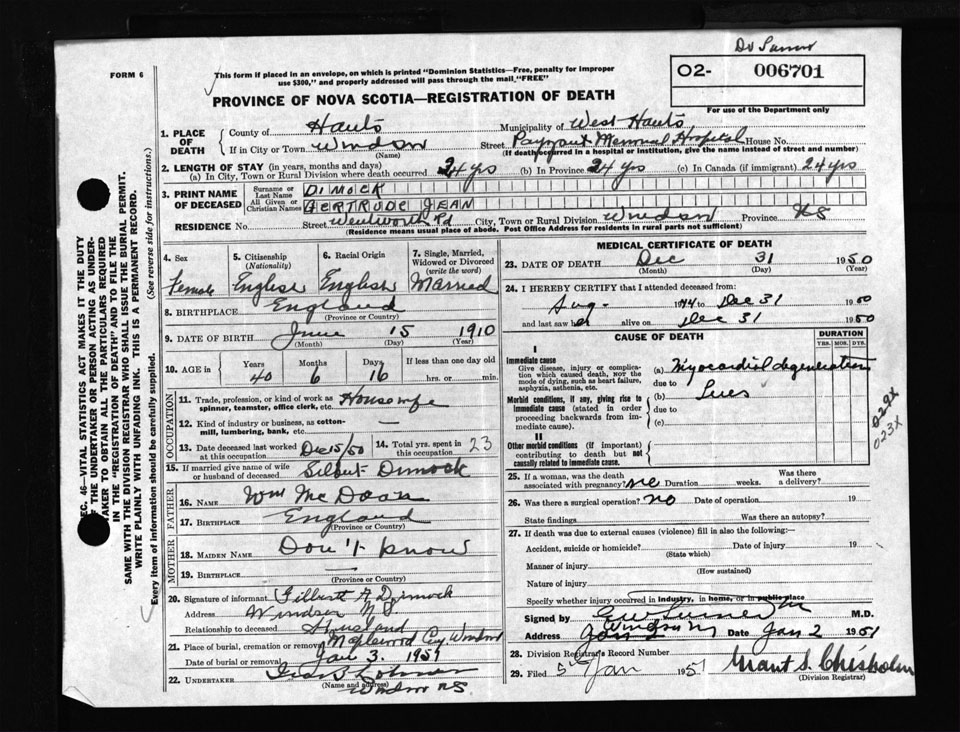 FORM 6
This form if placed in an envelope, on which is printed "Dominion Statistics—Free, penalty for improper
use $300," and properly addressed will pass through the mail "FREE"
02- 006701
For use of the Department only
PROVINCE OF NOVA SCOTIA—REGISTRATION OF DEATH
1. PLACE OF DEATH
County of Hants Municipality of West Hants
If in City or Town Windsor Street Payzant Memorial Hospital House No.
(Name) (If death occurred in a hospital or institution, give the name instead of street and number)
2. LENGTH OF STAY (in years, months and days)
(a) In City, Town or Rural Division where death occurred 24 yrs (b) In Province 24 yrs (c) In Canada (if immigrant) 24 yrs
3. PRINT NAME OF DECEASED
Surname or Last Name DIMOCK
All Given or Christian Names GERTRUDE JEAN
RESIDENCE No. Street Wentworth Rd City, Town or Rural Division Windsor Province NS
(Residence means usual place of abode. Post Office Address for residents in rural parts not sufficient)
4. Sex 5. Citizenship (Nationality) 6. Racial Origin 7. Single, Married, Widowed or Divorced (write the word)
Female English English Married
8. BIRTHPLACE England
(Province or Country)
9. DATE OF BIRTH June 15 1910
(Month) (Day) (Year)
10. AGE in Years Months Days If less than one day old
40 6 16 hrs. or min.
OCCUPATION
11. Trade, profession, or kind of work as spinner, teamster, office clerk, etc. Housewife
12. Kind of industry or business, as cotton-mill, lumbering, bank, etc. —
13. Date deceased last worked at this occupation Dec 15/50 14. Total yrs. spent in 23
15. If married give name of wife or husband of deceased Gilbert Dimock
FATHER
16. Name Wm
17. Birthplace England
(Province or Country)
MOTHER
18. MAIDEN NAME Don't know
19. BIRTHPLACE —
(Province or Country)
20. Signature of informant Gilbert A Dimock
Address Windsor N.S.
Relationship to deceased Husband
21. Place of burial, cremation or removal Maplewood Cey Windsor
Date of burial or removal Jan 3. 1951
22. UNDERTAKER
(Name and address) Windsor NS
MEDICAL CERTIFICATE OF DEATH
23. DATE OF DEATH Dec 31 1950
(Month) (Day) (Year)
24. I HEREBY CERTIFY that I attended deceased from:
Aug 1944 to Dec 31 1950
and last saw her alive on Dec 31 1950
CAUSE OF DEATH
DURATION
YRS. MOS. DYS.
I
Immediate cause
Give disease, injury or complication which caused death, not the mode of dying, such as heart failure, asphyxia, asthenia, etc.
(a) Myocardial degeneration
due to
Morbid conditions, if any, giving rise to immediate cause (stated in order proceeding backwards from immediate cause).
(b) Lues
due to
(c)
II
Other morbid conditions (if important) contributing to death but not causally related to immediate cause.
023X
25. If a woman, was the death associated with pregnancy? no Duration weeks. Was there a delivery?
26. Was there a surgical operation? no Date of operation 19
State findings Was there an autopsy?
27. If death was due to external causes (violence) fill in also the following:—
Accident, suicide or homicide? Date of injury 19
(State which)
Manner of injury
(How sustained)
Nature of injury
Specify whether injury occurred in industry, in home, or in public place
Signed by M.D.
Address Windsor Date Jan 2 1951
28. Division Registrar's Record Number
29. Filed 5 Jan 1951 Grant S. Chisholm
(Division Registrar)
SEC. 46—VITAL STATISTICS ACT MAKES IT THE DUTY
OF THE UNDERTAKER OR PERSON ACTING AS UNDERTAKER TO OBTAIN ALL THE PARTICULARS REQUIRED
IN THE "REGISTRATION OF DEATH" AND TO FILE THE
SAME WITH THE DIVISION REGISTRAR WHO SHALL ISSUE THE BURIAL PERMIT.
WRITE PLAINLY WITH UNFADING INK. THIS IS A PERMANENT RECORD.
Every item of information should be carefully supplied. (See reverse side for instructions.)